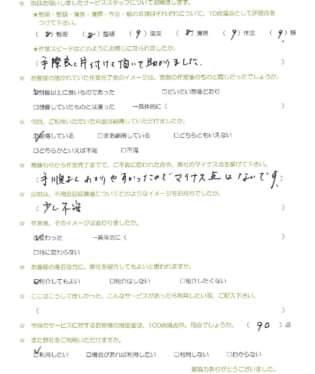 ★ 当日お伺いしましたサービススタッフについてお聞きします。
★整理・整頓・清潔・清掃・作法・躾の各項目それぞれについて、10点満点として評価点を
つけて下さい。
( 8 )整理 ( 8 )整頓 ( 9 )清潔 ( 8 )清掃 ( 9 )作法 ( 9 )躾
★作業スピードはどのようにお感じになられましたか。
(手際良く片付けて頂いて助かりました。
★ お客様の抱かれていた作業完了後のイメージは、実際の作業後のものと同じだったでしょうか。
☑想像以上に良いものであった □だいたい想像どおり
□想像していたものとは違った →具体的に(
★ 今回、ご利用いただいた料金は納得していただけましたか。
☑納得している □まあ納得している □どちらともいえない
□どちらかといえば不満 □不満
★ 見積もりから作業完了までで、ご不満に思われた点や、弊社のマイナス点を挙げて下さい。
(手順もよくわかりやすかったのでマイナス点はないです。)
★ 以前は、不用品回収業者についてどのようなイメージをお持ちでしたか。
(少し不安
★ 作業後、そのイメージは変わりましたか。
☑変わった →具体的に(
□特に変わらない
★ お客様の身近な方に、弊社を紹介してもよいと思われますか。
☑紹介してもよい □紹介はしない □紹介したくない
★ ここはこうして欲しかった、こんなサービスがあったら利用したい等、ご記入下さい。
( )
★ 今回のサービスに対するお客様の満足度は、100点満点中、何点でしょうか。 ( 90 )点
★ また弊社をご利用いただけますか。
☑利用したい □機会があれば利用したい □利用しない □わからない
御協力ありがとうございました。